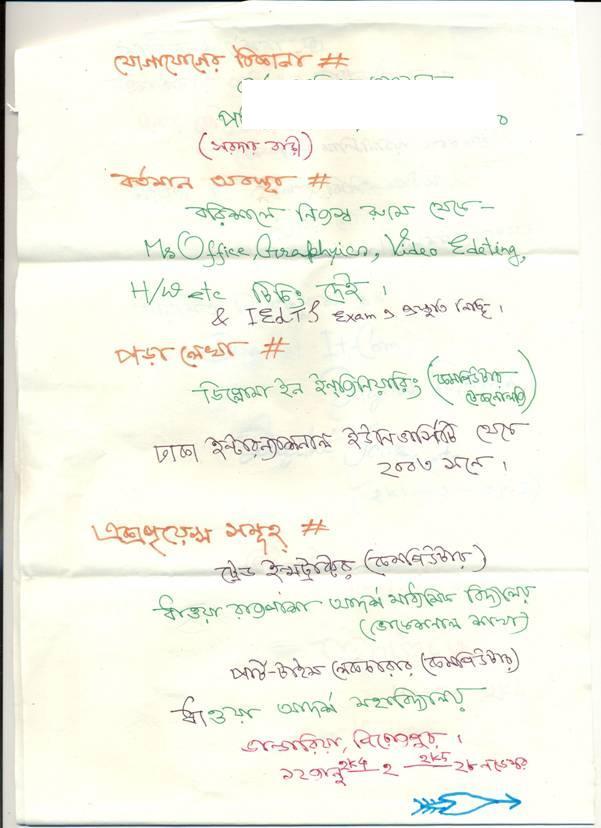 যোগাযোগের ঠিকানা #
(সরদার বাড়ী)
বর্তমান অবস্থান #
বরিশালে নিজস্ব রুমে থেকে-
Ms Office, Graphyics, Video Edeting,
H/W etc টিচিং দেই।
& IEdTS Exam এ প্রস্তুতি নিচ্ছি।
পড়া লেখা #
ডিপ্লোমা ইন ইন্জিনিয়ারিং (কমপিউটার
টেকনোলজি)
ঢাকা ইন্টারন্যাশনাল ইউনিভার্সিটি থেকে
২০০৩ সনে।
এক্সপ্রিয়েন্স সমূহ #
ট্রেড ইন্সট্রাক্টর (কমপিউটার)
ধাঁওয়া রাজপাশা আদর্শ মাধ্যমিক বিদ্যালয়
(ভোকেশনাল শাখা)
পার্ট-টাইম লেকচারার (কমপিউটার)
ধাঁওয়া আদর্শ মহাবিদ্যালয়
ভান্ডারিয়া, পিরোজপুর।
১২ জানু 2k4 2 2k5 ২৮ নভেম্বর